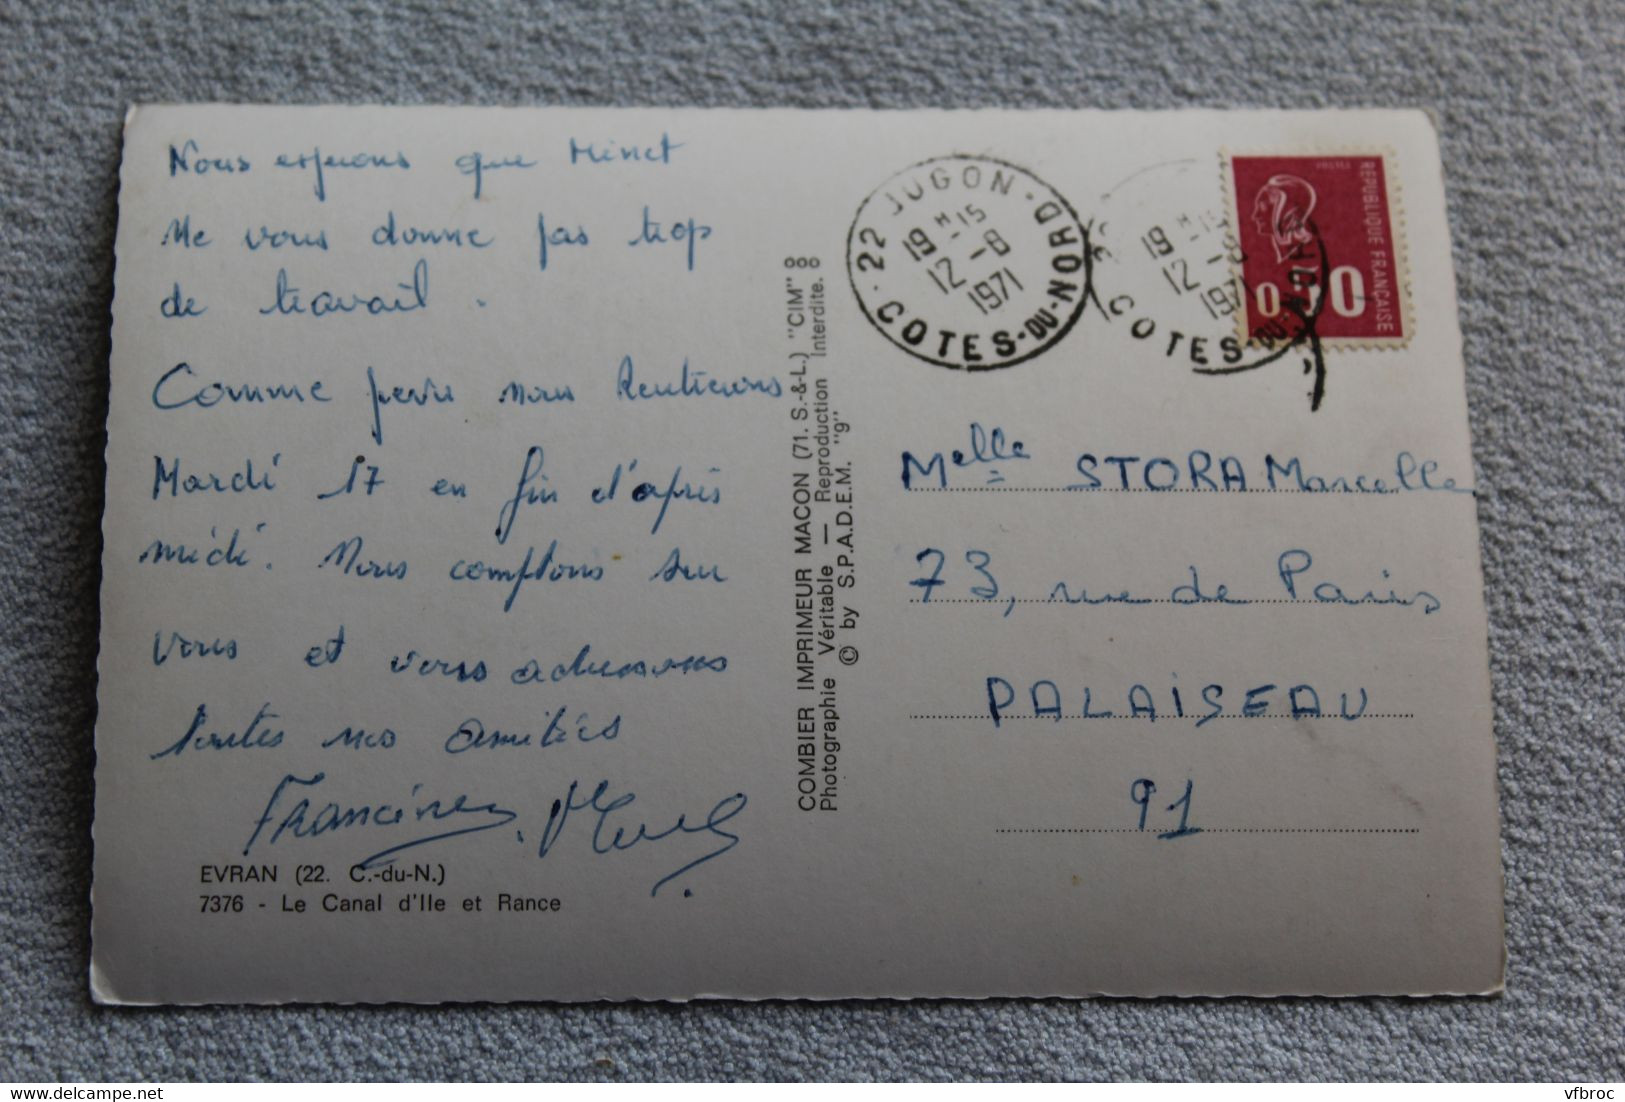 Nous espérons que Minet
Ne vous donne pas trop
de travail.
Comme prévu nous Rentrerons
Mardi 17 en fin d'après
midi. Nous comptons sur
vous et vous adressons
toutes nos amitiés
Francine
EVRAN (22. C.-du-N.)
7376 - Le Canal d'Ile et Rance
COMBIER IMPRIMEUR MACON (71. S.-&-L.) "CIM"
Photographie Véritable — Reproduction Interdite.
© by S.P.A.D.E.M. "9"
22 JUGON
19 H -15
12 -8
1971
COTES-DU-NORD
19 H -15
12 -8
1971
COTES-DU-NORD
REPUBLIQUE FRANÇAISE
Melle STORA Marcelle
73, rue de Paris
PALAISEAU
91
vfbroc